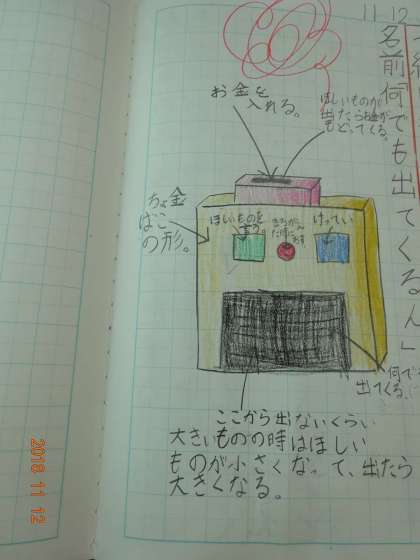 11 12
名前何でも出てくるん」
お金を
入れる。
ほしいものが
出たらお金が
もどってくる。
ちょ金
ばこ
の形。
ほしいものを
言う。
けってい
何で
出てくる。
ここから出ないくらい
大きいものの時はほしい
ものが小さくなって、出たら
大きくなる。
2018 11 12